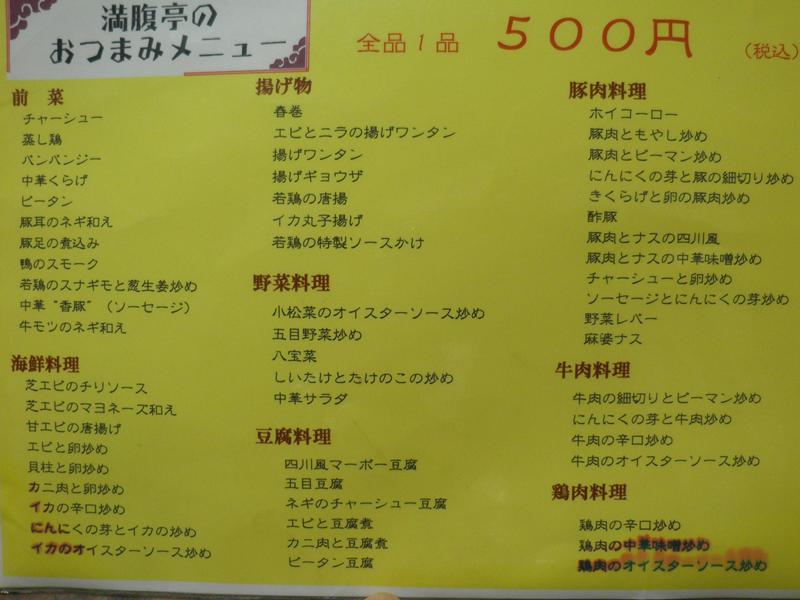 満腹亭の
おつまみメニュー
全品1品 500円 (税込)
前菜
チャーシュー
蒸し鶏
バンバンジー
中華くらげ
ピータン
豚耳のネギ和え
豚足の煮込み
鴨のスモーク
若鶏のスナギモと葱生姜炒め
中華"香豚"(ソーセージ)
牛モツのネギ和え
海鮮料理
芝エビのチリソース
芝エビのマヨネーズ和え
甘エビの唐揚げ
エビと卵炒め
貝柱と卵炒め
カニ肉と卵炒め
イカの辛口炒め
にんにくの芽とイカの炒め
イカのオイスターソース炒め
揚げ物
春巻
エビとニラの揚げワンタン
揚げワンタン
揚げギョウザ
若鶏の唐揚
イカ丸子揚げ
若鶏の特製ソースかけ
野菜料理
小松菜のオイスターソース炒め
五目野菜炒め
八宝菜
しいたけとたけのこの炒め
中華サラダ
豆腐料理
四川風マーボー豆腐
五目豆腐
ネギのチャーシュー豆腐
エビと豆腐煮
カニ肉と豆腐煮
ピータン豆腐
豚肉料理
ホイコーロー
豚肉ともやし炒め
豚肉とピーマン炒め
にんにくの芽と豚の細切り炒め
きくらげと卵の豚肉炒め
酢豚
豚肉とナスの四川風
豚肉とナスの中華味噌炒め
チャーシューと卵炒め
ソーセージとにんにくの芽炒め
野菜レバー
麻婆ナス
牛肉料理
牛肉の細切りとピーマン炒め
にんにくの芽と牛肉炒め
牛肉の辛口炒め
牛肉のオイスターソース炒め
鶏肉料理
鶏肉の辛口炒め
鶏肉の中華味噌炒め
鶏肉のオイスターソース炒め